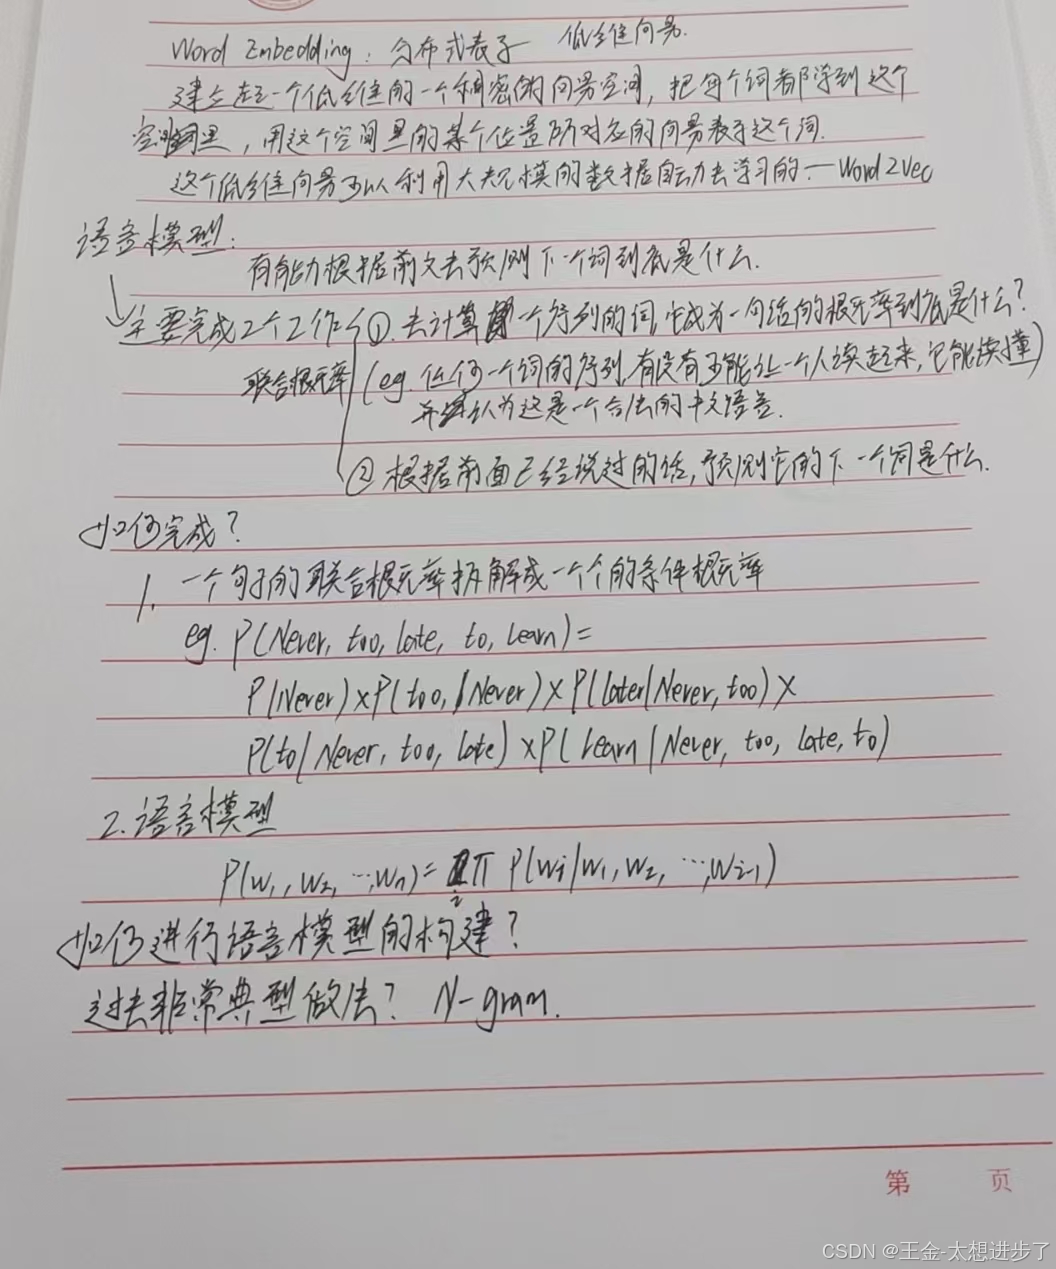 Word Embedding: 分布式表示 低维向量.
建立起一个低维的一个稠密的向量空间, 把每个词都学到这个
空间里, 用这个空间里的某个位置所对应的向量表示这个词.
这个低维向量可以利用大规模的数据自动去学习的 — Word2vec
语言模型:
有能力根据前文去预测下一个词到底是什么.
主要完成2个工作 ①. 去计算一个序列的词, 它成为一句话的概率到底是什么?
联合概率 (eg. 任何一个词的序列, 有没有可能让一个人读起来, 它能读懂)
并认为这是一个合法的中文语言.
② 根据前面已经说过的话, 预测它的下一个词是什么.
如何完成?
1. 一个句子的联合概率拆解成一个个的条件概率
eg. P(Never, too, late, to, learn)=
P(Never)×P(too,|Never)×P(later|Never, too)×
P(to|Never, too, late)×P(Learn|Never, too, late, to)
2. 语言模型
P(w₁, w₂, …, wₙ)= π P(wᵢ|w₁, w₂, …, wᵢ₋₁)
i
如何进行语言模型的构建?
过去非常典型做法? N-gram.
第 页
CSDN @王金-太想进步了